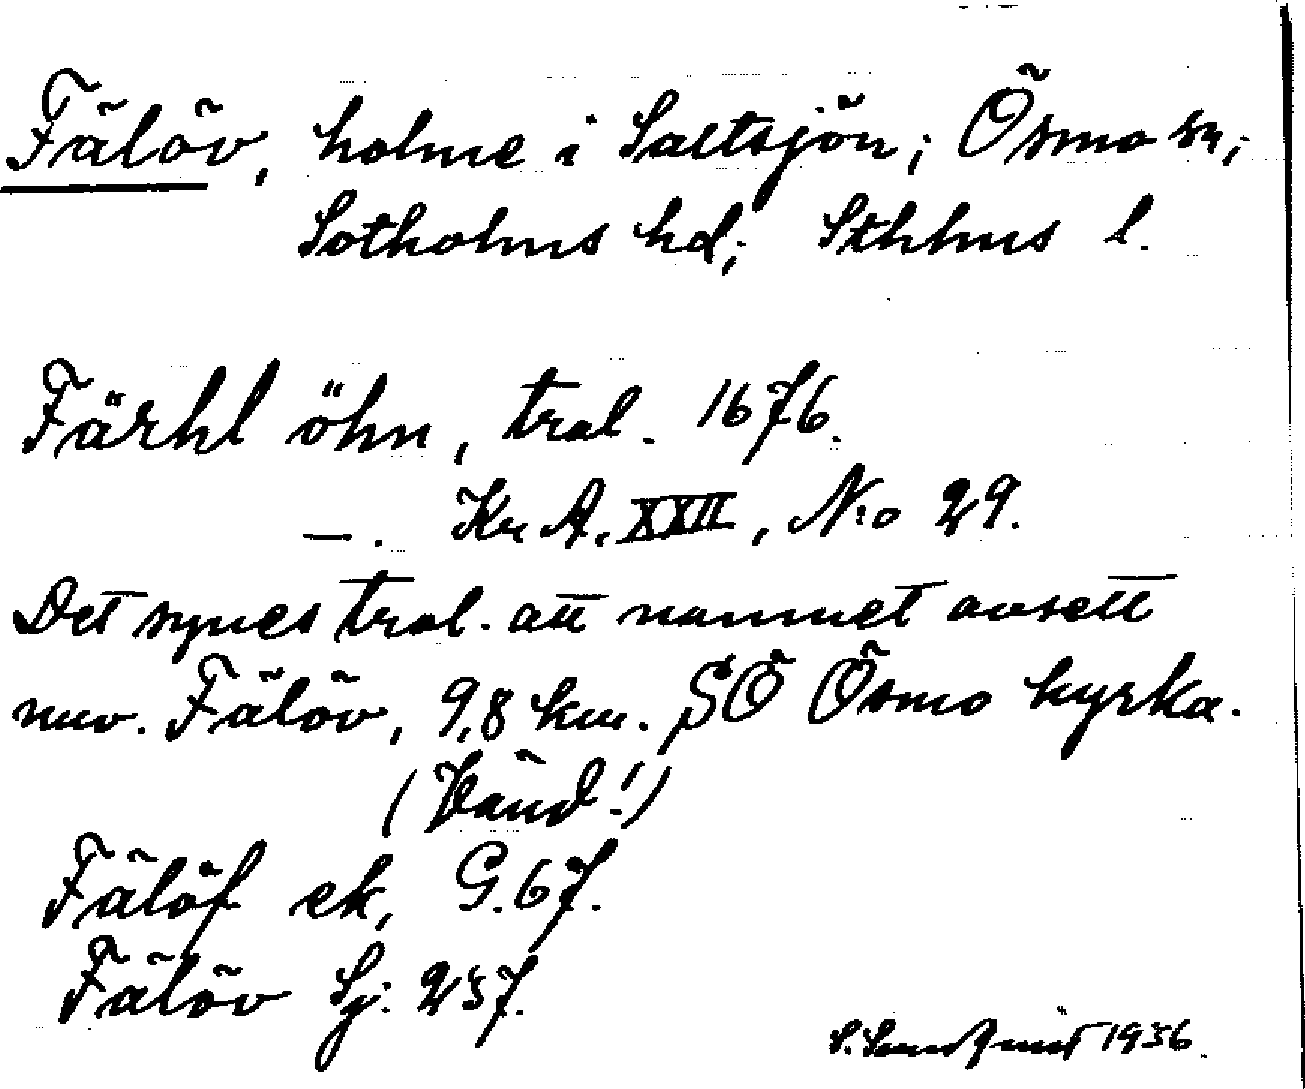 Fälöv, holme i Saltsjön; Ösmo sn;
Sotholms hd; Sthlms l.
Färhl öhn, trol. 1676.
—. Kr. A. XXII, N:o 29.
Det synes trol. att namnet avsett
nuv. Fälöv, 9,8 km. SÖ Ösmo kyrka.
(Vänd!)
Fälöf ek, G. 67.
Fälöv Sj: 237.
S. Sundquist 1936.